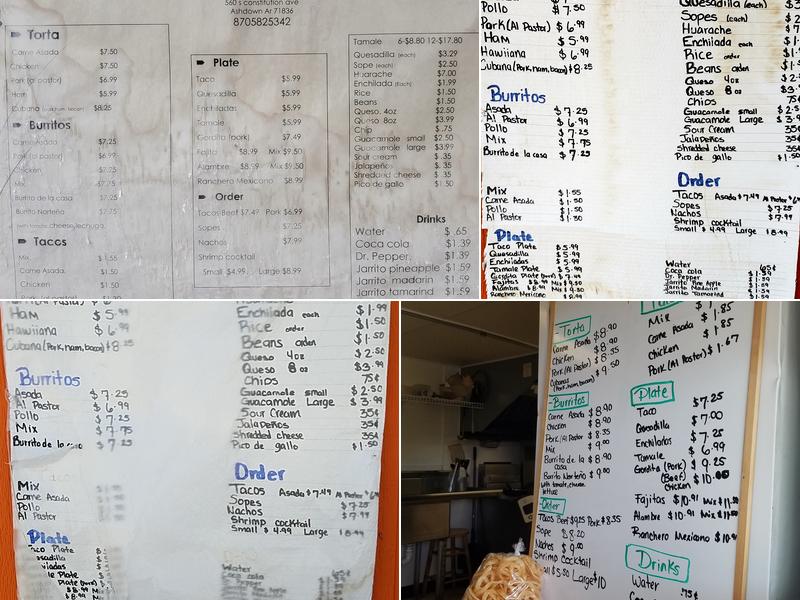 560 s constitution ave
Ashdown Ar 71836
8705825342
Torta
Carne Asada $7.50
Chicken $7.50
Pork (al pastor) $6.99
Ham $5.99
Cubana (pork,ham, bacon) $8.25
Burritos
Carne Asada $7.25
Pork (al pastor) $6.99
Chicken $7.75
Mix $7.75
Burrito de la casa $7.25
Burrito Norteño $7.75
(with tomato,cheese,lechuga
Tacos
Mix $1.55
Carne Asada $1.50
Chicken $1.50
Plate
Taco $5.99
Quesadilla $5.99
Enchiladas $5.99
Tamale $5.99
Gordita (pork) $7.49
Fajita $8.99 Mix $9.50
Alambre $8.99 Mix $9.50
Ranchero Mexicano $8.99
Order
Tacos Beef $7.49 Pork $6.99
Sopes $7.25
Nachos $7.99
Shrimp cocktail
Small $4.99 Large $8.99
Tamale 6-$8.80 12-$17.80
Quesadilla (each) $3.29
Sope (each) $2.50
Huarache $7.00
Enchilada (each) $1.99
Rice $1.50
Beans $1.50
Queso, 4oz $2.50
Queso 8oz $3.99
Chip $.75
Guacamole small $2.50
Guacamole large $3.99
Sour cream $.35
Jalapeño $.35
Shredded cheese $.35
Pico de gallo $1.50
Drinks
Water $.65
Coca cola $1.39
Dr. Pepper, $1.39
Jarrito pineapple $1.59
Jarrito madarin $1.59
Jarrito tamarind $1.59
Pollo $7.50
Pork (Al Pastor) $6.99
Ham $5.99
Hawiiana $6.99
Cubana (Pork, ham, bacon) $8.25
Burritos
Asada $7.25
Al Pastor $6.99
Pollo $7.25
Mix $7.75
Burrito de la casa $7.25
Mix $1.55
Carne Asada $1.50
Pollo $1.50
Al Pastor $1.50
Plate
Taco Plate $5.99
Quesadilla $5.99
Enchiladas $5.99
Tamale Plate $5.99
Gordita Plate (Pork) $7.49
Fajitas $8.99 Mix $9.50
Alambre $8.99 Mix $9.50
Ranchero Mexicano $8.99
Quesadilla (each)
Sopes (each)
Huarache
Enchilada each
Rice order
Beans orden
Queso 4oz
Queso 8 oz
Chips
Guacamole small
Guacamole Large
Sour Cream
Jalapeños
shredded cheese
Pico de gallo $1.50
Order
Tacos Asada $7.49 Al Pastor
Sopes $7.25
Nachos $7.99
Shrimp cocktail
Small $4.99 Large
Water 65¢
Coca Cola $1.39
Dr. Pepper $1.39
Jarrito Pine Apple $1.59
Jarrito Madarin $1.59
Jarrito Tamarind $1.59
Ham $5.99
Hawiiana $6
Cubana (Pork, nam, bacon) $8.25
Burritos
Asada $7.25
Al Pastor $6.99
Pollo $7.25
Mix $7.75
Burrito de la $7.25
Mix
Carne Asada
Pollo
Al Pastor
Plate
Enchilada each $1.99
Rice order $1.50
Beans orden $1.50
Queso 4oz $2.50
Queso 8 oz $3.99
Chips 75¢
Guacamole small $2.50
Guacamole Large $3.99
Sour Cream 35¢
Jalapeños 35¢
Shredded cheese 35¢
Pico de gallo $1.50
Order
Tacos Asada $7.49 Al Pastor
Sopes $7.25
Nachos $7.99
Shrimp cocktail
Small $4.99 Large
Water 65¢
-Torta
Carne Asada $8.90
Chicken $8.90
Pork (Al Pastor) $8.35
Cubanas $9.50
(Pork,ham,bacon)
-Burritos
Carne Asada $8.90
Chicken $8.90
Pork/Al Pastor $8.35
Mix $9.00
Burrito de la $8.90
casa
Burrito Norteño $9.00
with tomato, cheese
lettuce
Order
Tacos Beef $9.25 Pork $8.35
Sope $8.20
Nachos $9.00
Shrimp Cocktail
Small $5.50 Large $10
Mix $1.85
Carne Asada $1.85
Chicken $1.85
Pork (Al Pastor) $1.67
Plate
Taco $7.25
Quesadilla $7.00
Enchiladas $7.25
Tamale $6.99
Gordita (Pork) $9.25
(Beef) $10.00
Chicken
Fajitas $10.91 Mix $11.50
Alambre $10.91 Mix
Ranchero Mexicano $10.91
Drinks
Water .75¢